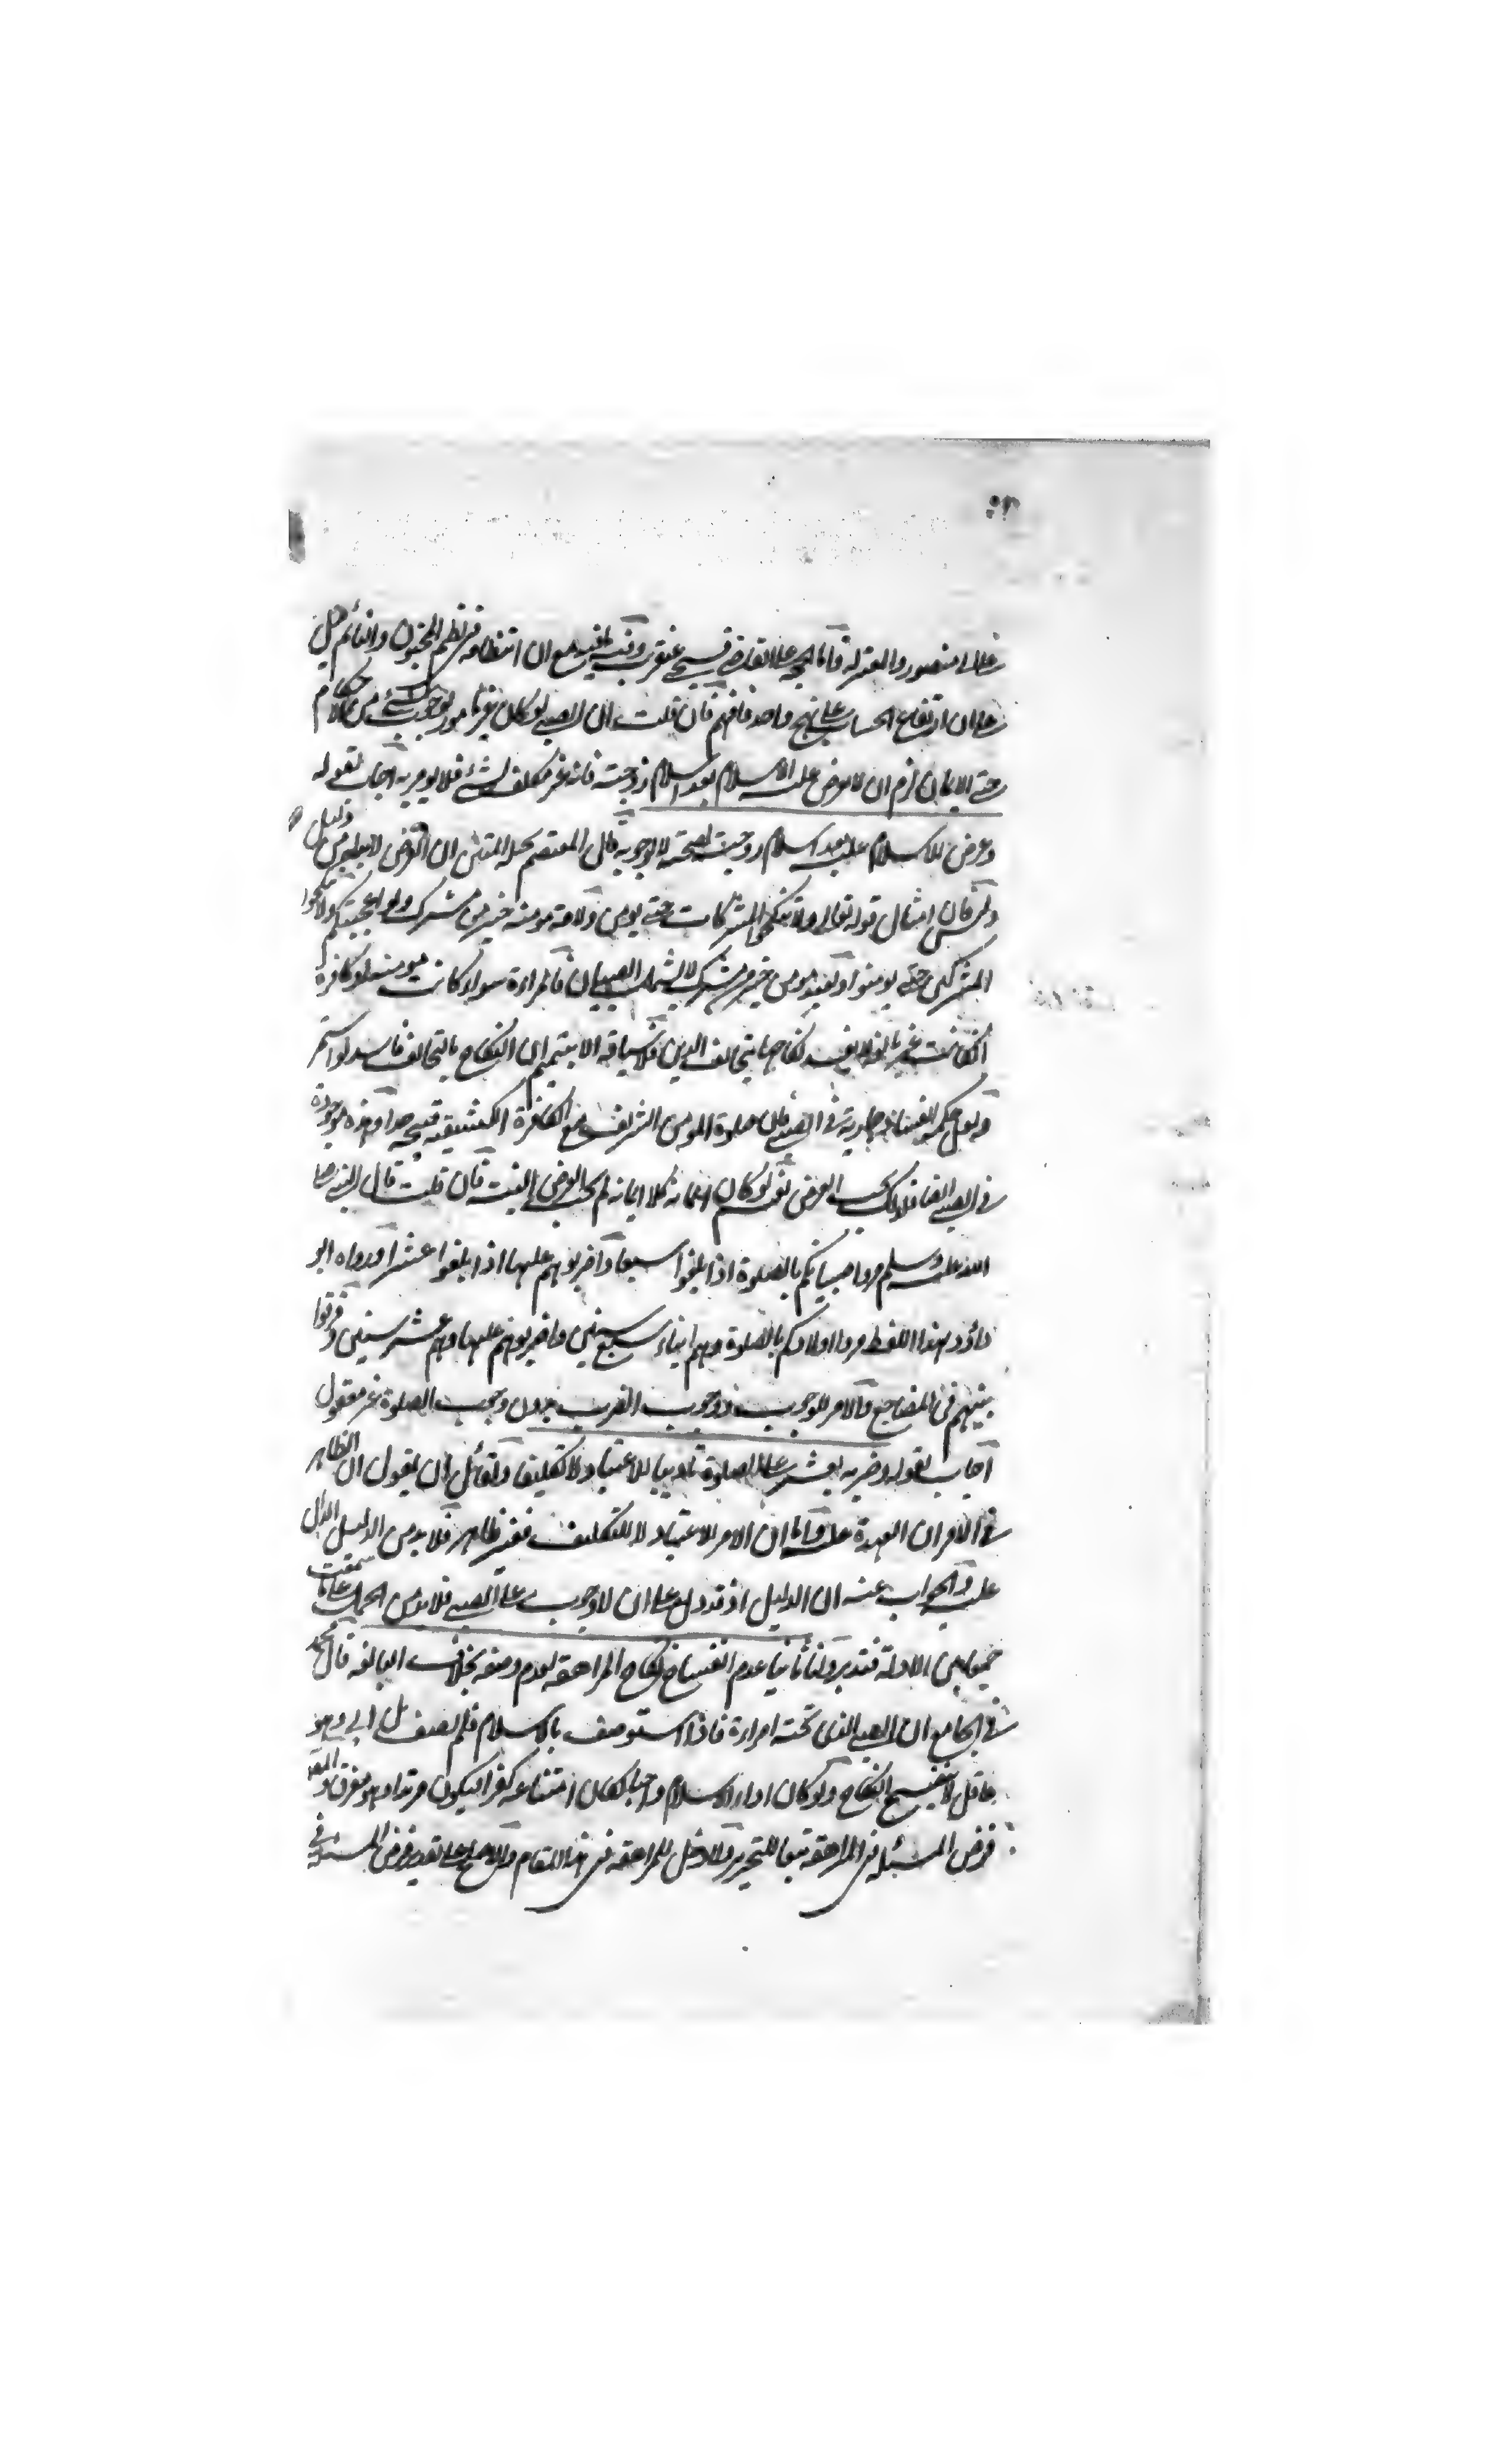 على ابي منصور والمعتزلة فاما الحجة على القاضي فسيجئ عنقريب مع ان انتظامه في نظم المجنون والنائم يدل
على ان ارتفاع الحساب على نهج واحد فافهم فان قلت ان الصبي لو كان غير مامور بوجوب شئ من الاحكام
حتى الايمان لزم ان لا يعرض عليه الاسلام بعد اسلام زوجته فانه غير مكلف بشئ فلا يومر به اجاب بقوله
وعرض الاسلام عليه بعد اسلام زوجته لصحته لا لوجوبه قال المعتصم بحبله المتين ان العرض لا بد له من دليل
وليس فان امثال قوله تعالى ولا تنكحوا المشركات حتى يومن ولامة مومنة خير من مشركة ولو اعجبتكم ولا تنكحوا
المشركين حتى يومنوا ولعبد مومن خير من مشرك لا يشمل الصبيان فالمراءة سواء كانت مومنة او كافرة
اذا كانت غير بالغة لا يفسد نكاحها بتخالف الدين فلا سياقه الا بتتميم ان النكاح بالتخالف فاسد لو استمر
ولعل حكم الفساد جارية في الصبي فان معاودة المومن الشريف مع الكافرة الكثيفة قبيحة جدا وهذه موجودة
في الصبي ايضا فلذلك يجب العرض نعم لو كان ايمانه كلا ايمانه لم يجب العرض البتة فان قلت قال النبي صلى
الله عليه وسلم مروا صبيانكم بالصلوة اذا بلغوا سبعا واضربوهم عليها اذا بلغوا عشرا ورواه ابو
داؤد بهذا اللفظ مروا اولادكم بالصلوة وهم ابناء سبع سنين واضربوهم عليها وهم عشر سنين وفرقوا
بينهم في المضاجع والامر للوجوب ووجوب الضرب بدون وجوب الصلوة غير معقول
اجاب بقوله وضربه بعشر على الصلوة تاديبا للاعتياد لا تكليفا ولقائل ان يقول ان الظاهر
في الامر ان العهدة عليه واما ان الامر للاعتياد لا للتكليف فغير ظاهر فلا بد من الدليل الدال
عليه والجواب عنه ان الدليل اذ قد دل على ان لا وجوب على الصبي فلا بد من الحمل على ما سمعت
جمعا بين الادلة فتدبر ولنا ثانيا عدم انفساخ نكاح المراهقة لعدم وصفه بخلاف البالغة قال محمد
في الجامع ان الصبي الذي تحته امراءة فاذا استوصف بالاسلام فلم يصف بل ابى وهو
عاقل لا ينفسخ النكاح ولو كان اداء الاسلام واجبا لكان امتناعه كفرا فيكون مرتدا وهو مفرق والمصنف
فرض المسئلة في المراهقة تبعا للتحرير ولا دخل للمراهقة في هذا المقام والاصلح على تقدير فرض المسئلة في